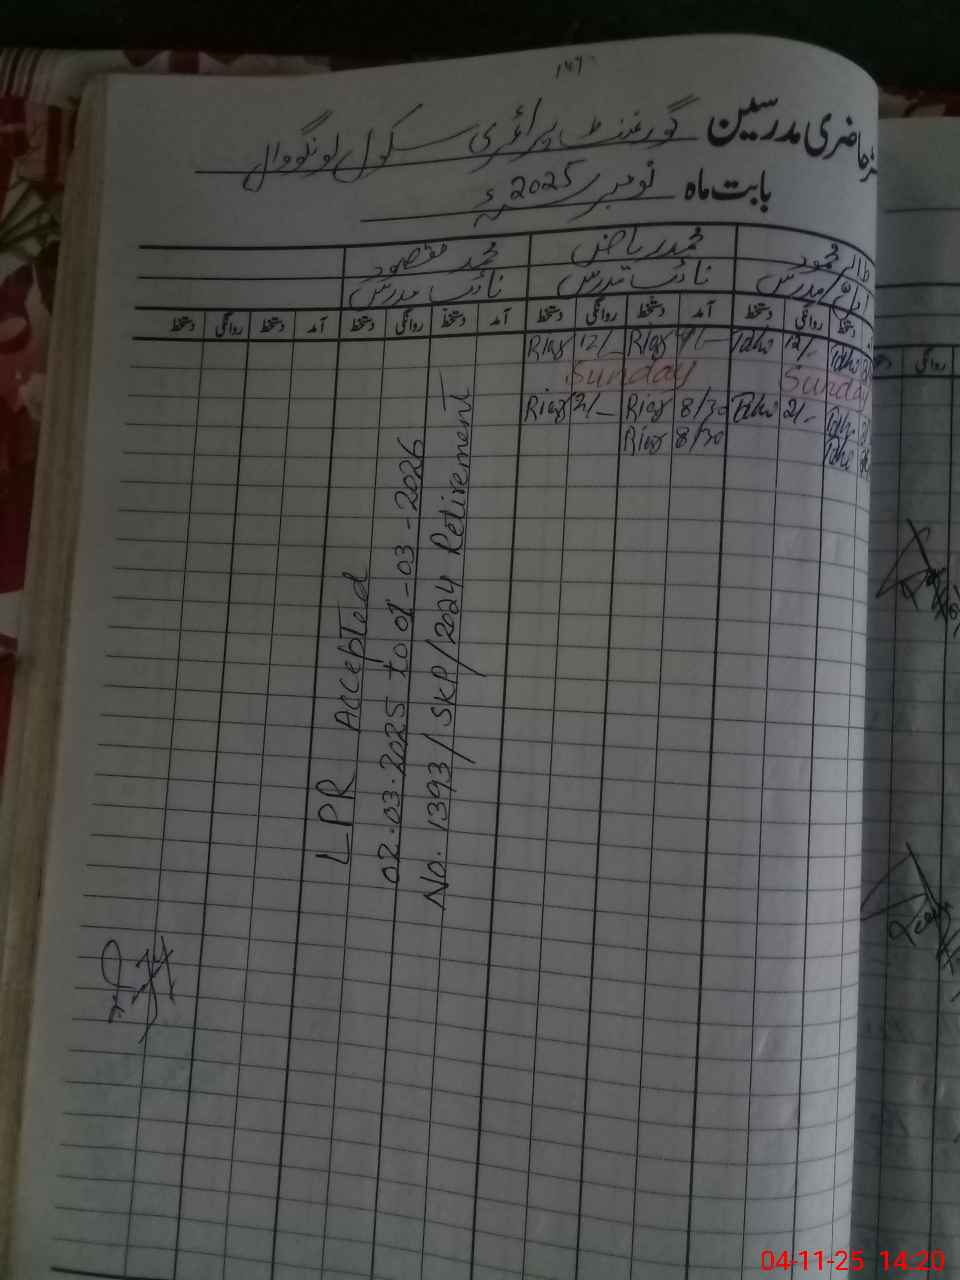 ۱۴۶
حاضری مدرسین گورنمنٹ پرائمری سکول لونگووال
بابت ماہ نومبر 2025ء
محمد ریاض محمد مقصود
مدرس نائب مدرس نائب مدرس
دستخط روانگی دستخط آمد دستخط روانگی دستخط آمد دستخط روانگی دستخط آمد دستخط روانگی دستخط
Riaz 12/- Riaz 12/-
Sunday Sunday
Riaz 2/- Riaz 8/30 2/-
Riaz 8/30
LPR Accepted
02.03.2025 to 01-03-2026
No. 1393/SKP/2024 Retirement
روانگی
04-11-25 14:20